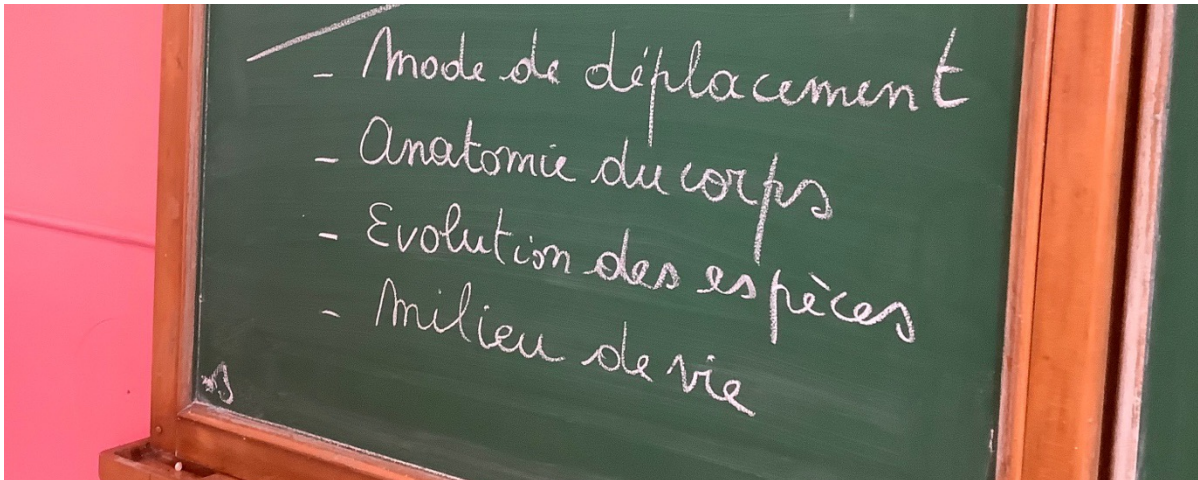 - Mode de déplacement
- Anatomie du corps
- Evolution des espèces
- Milieu de vie